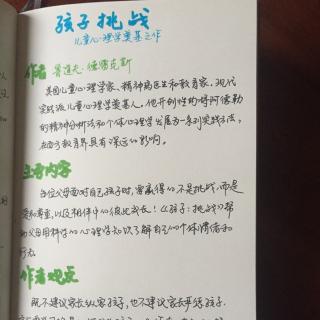 孩子挑战
儿童心理学奠基之作
作者 鲁道夫·德雷克斯
美国儿童心理学家、精神病医生和教育家。现代
实践派儿童心理学奠基人。他开创性的将阿德勒
的精神分析法和个体心理学发展为一系列实践方法,
在西方教育界具有深远的影响。
主要内容
各位父母面对自己孩子时,需赢得的不是挑战,而是
爱和尊重,以及相伴中的彼此成长!《孩子:挑战》帮
助父母用科学的心理学知识了解自己的个体情绪和
行为。
作者观点
既不建议家长纵容孩子,也不建议家长严惩孩子.